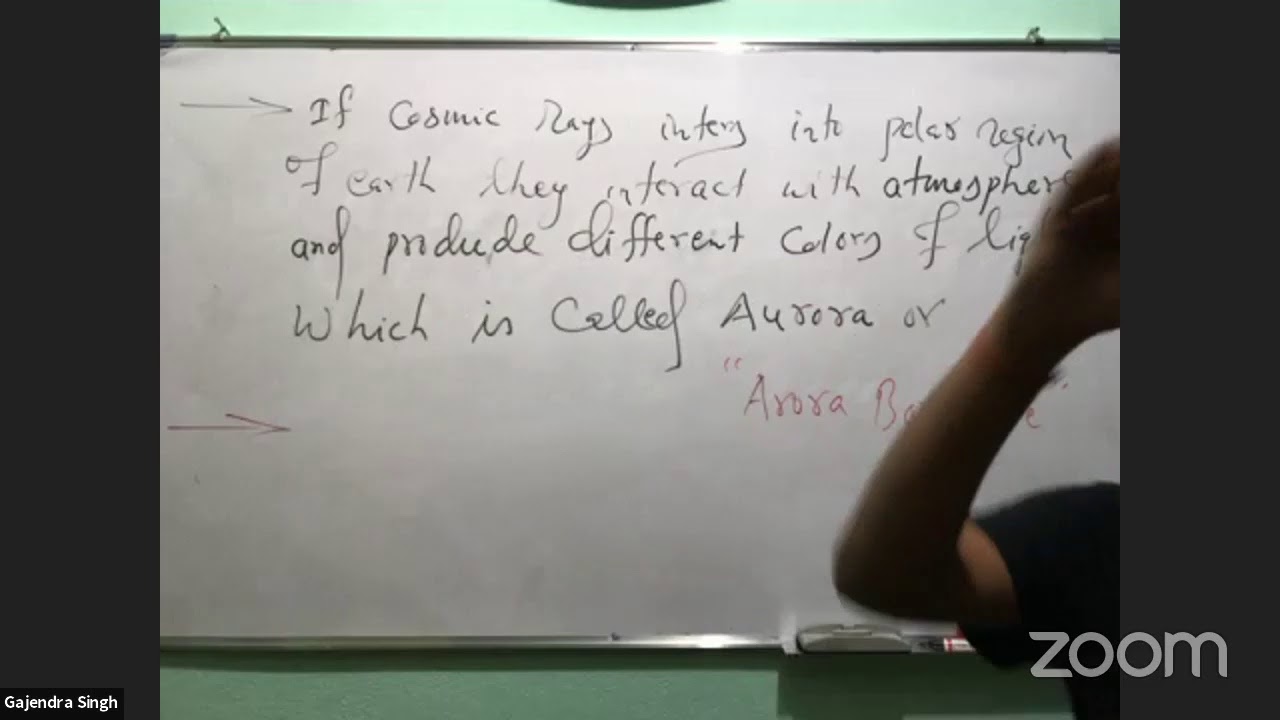 → If Cosmic Rays inters into polar region
of earth they interact with atmosphere
and produde different Colors of lig
Which is Called Aurora or
"Arora Ba e"
zoom
Gajendra Singh